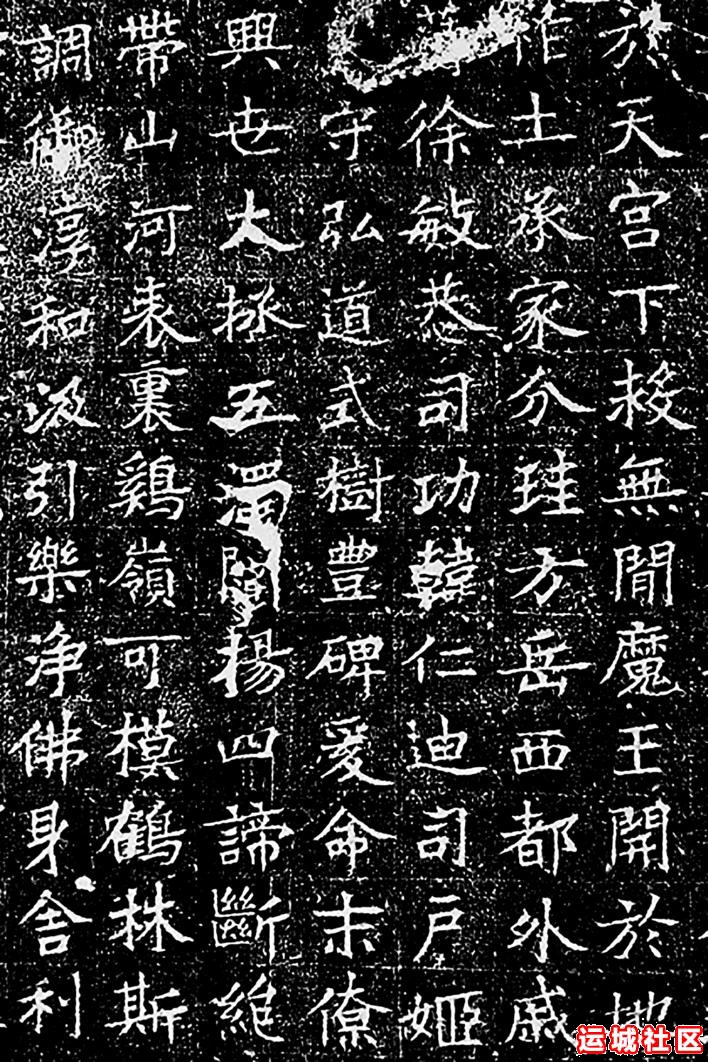 於天宮下救無間魔王開於地
作土承家分珪方岳西都外戚
等徐敏恭司功韓仁迪司戶姬
守弘道式樹豐碑爰命末僚
興世大拯五濁闡揚四諦斷
帶山河表裏鷄嶺可模鶴林斯
調御淳和汲引樂淨佛身舍利
运城社区